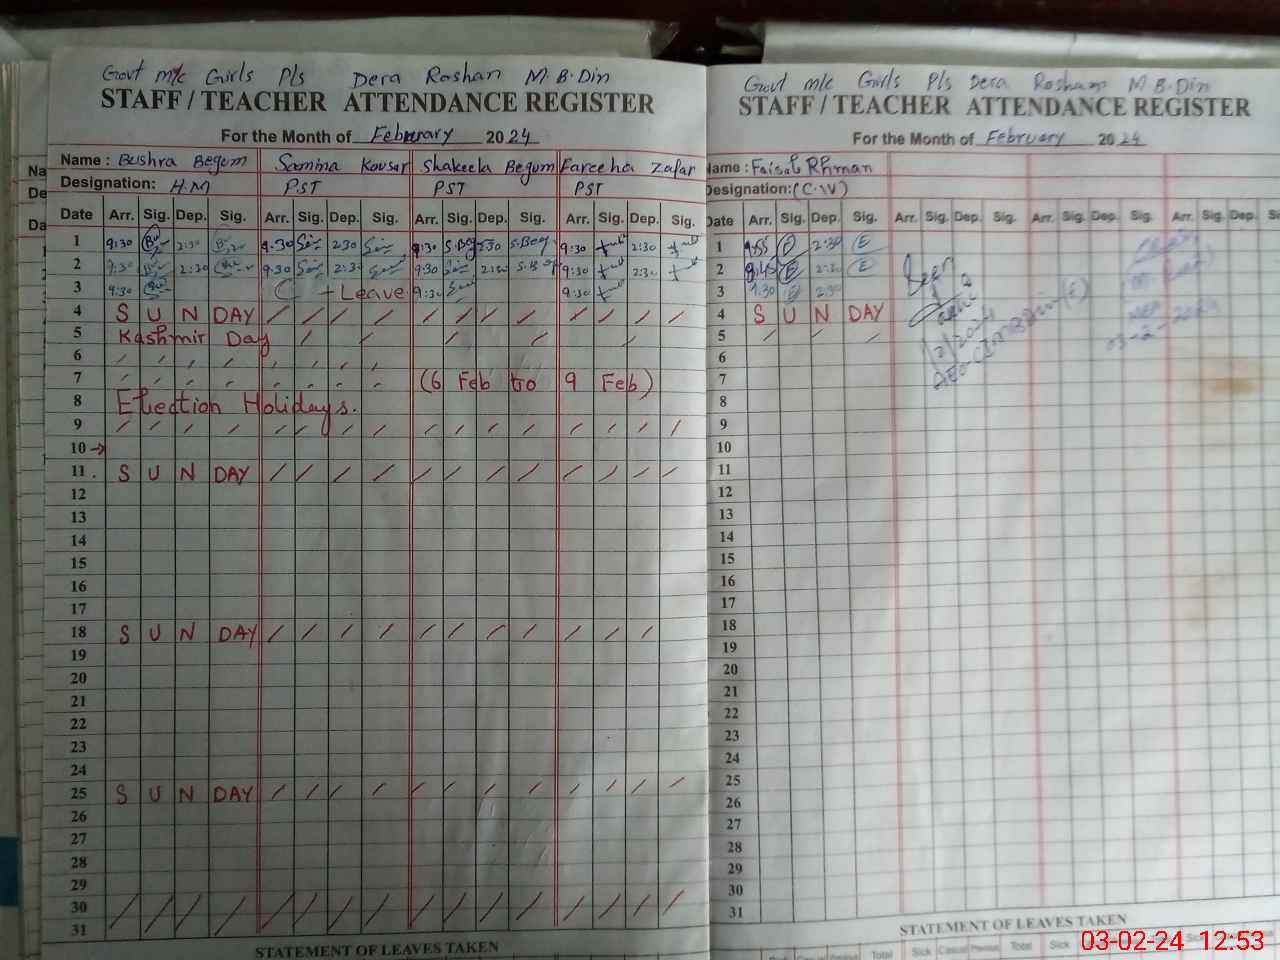 Govt m/c Girls Pls Dera Roshan M.B.Din
STAFF / TEACHER ATTENDANCE REGISTER
For the Month of February 2024
Name : Bushra Begum Samina Kousar Shakeela Begum Fareeha Zafar
Designation: H.M PST PST PST
Date Arr. Sig. Dep. Sig. Arr. Sig. Dep. Sig. Arr. Sig. Dep. Sig. Arr. Sig. Dep. Sig.
1 9:30 2:30 9.30 2:30 9:30 S.Beg 2:30 S.Beg 9:30 2:30
2 9:30 2:30 9:30 2:30 9:30 9:30 2:30
3 9:30 C + Leave 9:30 9:30
4 S U N DAY / / / / / / / / / / / /
5 Kashmir Day / / / / /
6
7 (6 Feb to 9 Feb)
8 Election Holidays.
9 / / / / / / / / / / / / / / / /
10 →
11 . S U N DAY / / / / / / / / / / / /
12
13
14
15
16
17
18 S U N DAY / / / / / / / / / / /
19
20
21
22
23
24
25 S U N DAY / / / / / / / / / / / /
26
27
28
29
30
31
STATEMENT OF LEAVES TAKEN
Na
De
Da
Govt m/c Girls Pls Dera Roshan M.B.Din
STAFF / TEACHER ATTENDANCE REGISTER
For the Month of February 2024
Name : Faisal Rhman
Designation: (C.IV)
Date Arr. Sig. Dep. Sig. Arr. Sig. Dep. Sig. Arr. Sig. Dep. Sig. Arr. Sig. Dep. S
1 2:30
2 8:45
3 9:30 2:30
4 S U N DAY
5 / / /
6
7
8
9
10
11
12
13
14
15
16
17
18
19
20
21
22
23
24
25
26
27
28
29
30
31
STATEMENT OF LEAVES TAKEN
Total Sick Casual Total Sick
03-02-24 12:53